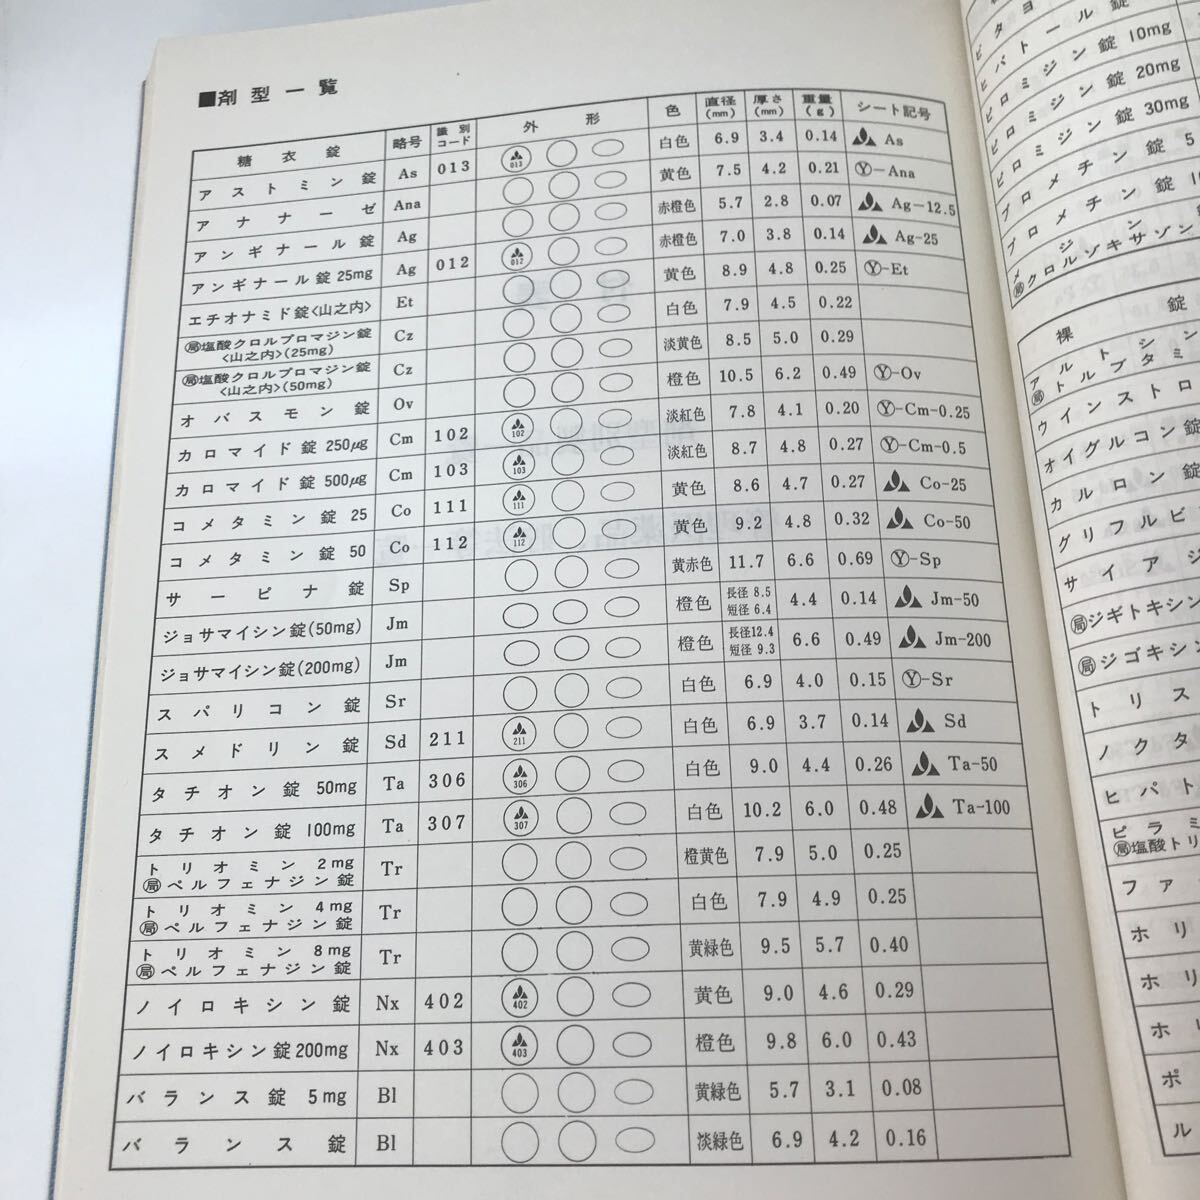 ■剤型一覧
糖衣錠 略号 識別コード 外形 色 直径(mm) 厚さ(mm) 重量(g) シート記号
アストミン錠 As 013 013 白色 6.9 3.4 0.14 As
アナナーゼ Ana 黄色 7.5 4.2 0.21 Ⓨ-Ana
アンギナール錠 Ag 赤橙色 5.7 2.8 0.07 Ag-12.5
アンギナール錠25mg Ag 012 012 赤橙色 7.0 3.8 0.14 Ag-25
エチオナミド錠<山之内> Et 黄色 8.9 4.8 0.25 Ⓨ-Et
㊁塩酸クロルプロマジン錠<山之内>(25mg) Cz 白色 7.9 4.5 0.22
局塩酸クロルプロマジン錠<山之内>(50mg) Cz 淡黄色 8.5 5.0 0.29
オバスモン錠 Ov 橙色 10.5 6.2 0.49 Ⓨ-Ov
カロマイド錠250μg Cm 102 102 淡紅色 7.8 4.1 0.20 Ⓨ-Cm-0.25
カロマイド錠500μg Cm 103 103 淡紅色 8.7 4.8 0.27 Ⓨ-Cm-0.5
コメタミン錠25 Co 111 111 黄色 8.6 4.7 0.27 Co-25
コメタミン錠50 Co 112 112 黄色 9.2 4.8 0.32 Co-50
サーピナ錠 Sp 黄赤色 11.7 6.6 0.69 Ⓨ-Sp
ジョサマイシン錠(50mg) Jm 橙色 長径 8.5 短径 6.4 4.4 0.14 Jm-50
ジョサマイシン錠(200mg) Jm 橙色 長径12.4 短径 9.3 6.6 0.49 Jm-200
スパリコン錠 Sr 白色 6.9 4.0 0.15 Ⓨ-Sr
スメドリン錠 Sd 211 211 白色 6.9 3.7 0.14 Sd
タチオン錠50mg Ta 306 306 白色 9.0 4.4 0.26 Ta-50
タチオン錠100mg Ta 307 307 白色 10.2 6.0 0.48 Ta-100
トリオミン2mg 局ペルフェナジン錠 Tr 橙黄色 7.9 5.0 0.25
トリオミン4mg 局ペルフェナジン錠 Tr 白色 7.9 4.9 0.25
トリオミン8mg 局ペルフェナジン錠 Tr 黄緑色 9.5 5.7 0.40
ノイロキシン錠 Nx 402 402 黄色 9.0 4.6 0.29
ノイロキシン錠200mg Nx 403 403 橙色 9.8 6.0 0.43
バランス錠5mg Bl 黄緑色 5.7 3.1 0.08
バランス錠 Bl 淡緑色 6.9 4.2 0.16
ビタヨ
ヒパトール錠
ピロミジン錠10mg
ピロミジン錠20mg
ピロミジン錠30mg
プロメチン錠5
プロメチン錠1
局クロルゾキサゾン
裸錠
アルトシン
局トルブタミ
ウインストロ
オイグルコン錠
カルロン錠
グリフルビ
サイアジ
局ジギトキシン
局ジゴキシン
トリス
ノクタ
ヒパト
ピラミ
局塩酸トリ
ファ
ホリ
ホリ
ホ
ポ
ル